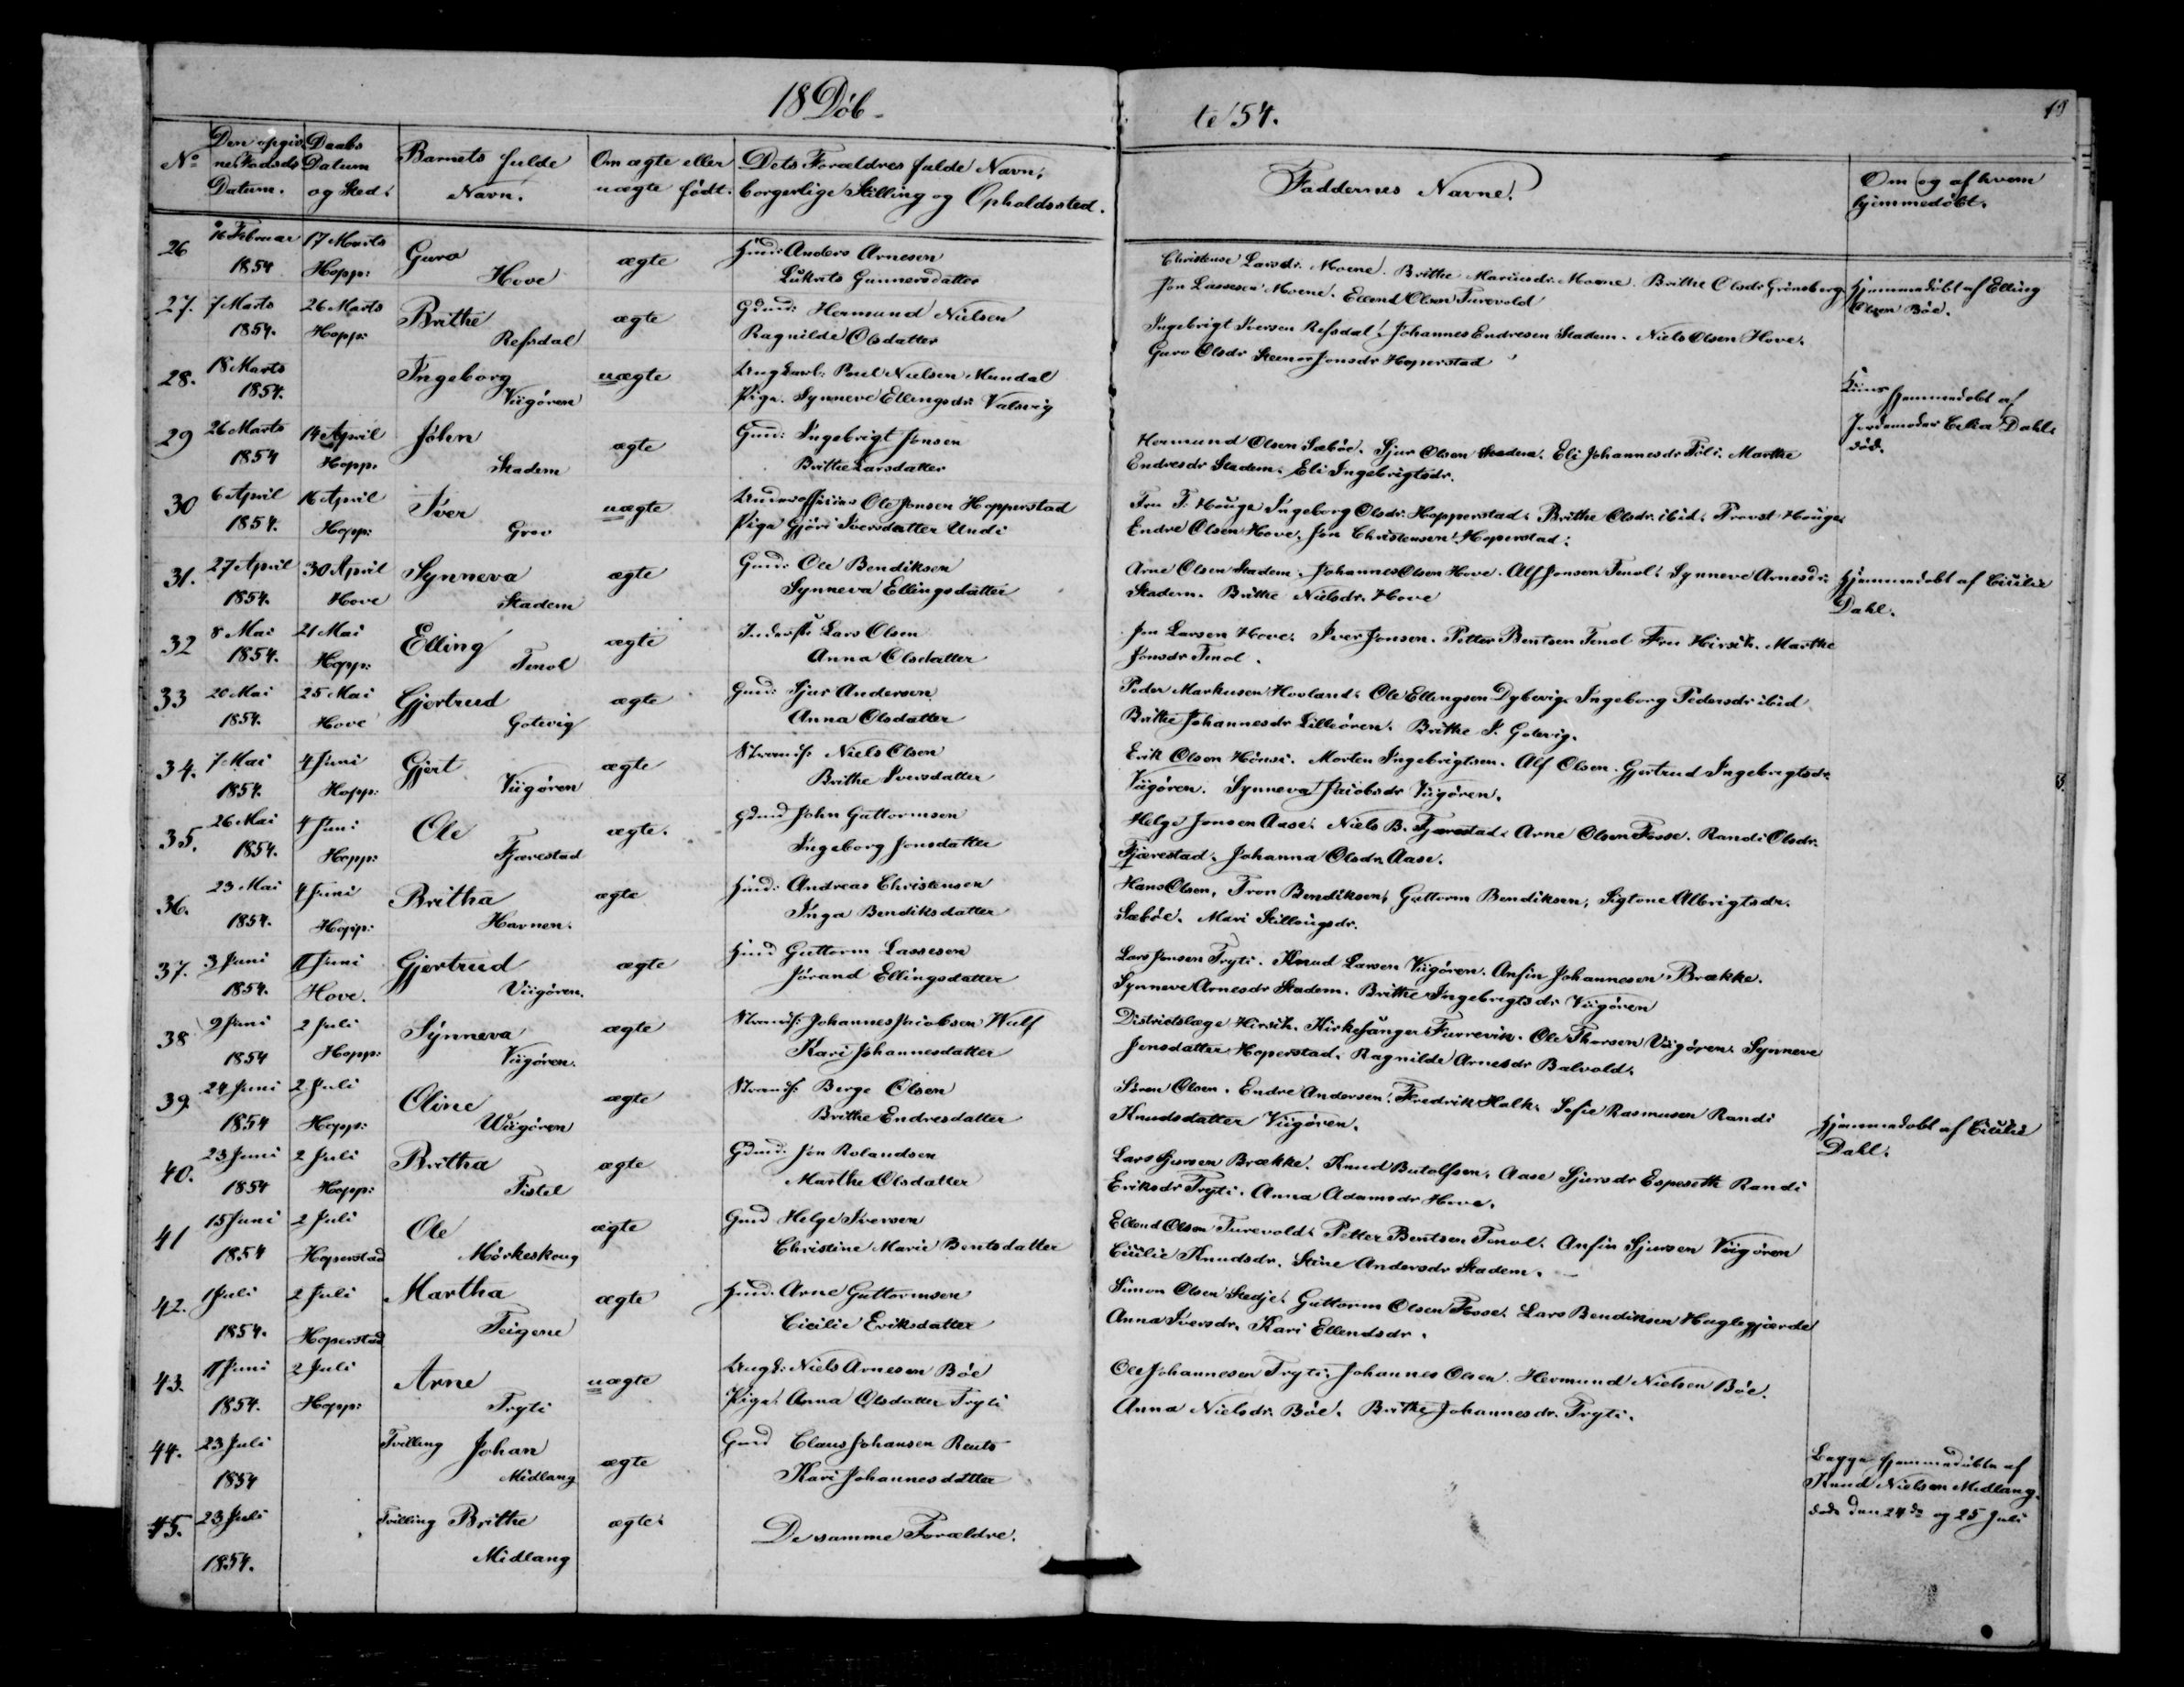 18 Döb-
te 54.
19
No
Den opgiv-
ne Fødsels
Datum.
Daabs
Datum
og Sted.
Barnets fulde
Navn.
Om ægte eller
uægte født.
Dets Forældres fulde Navn,
borgerlige Stilling og Opholdssted.
Faddernes Navne.
Om og af hvem
hjemmedøbt.
26
16 Februar
1854
17 Marts
Hopp:
Guro
Hove
ægte
Huus: Anders Arnesen
Gunnersdatter
Christense Larsdr. Moene. Brithe Mariusdr. Moene. Brithe Olsdr Grønsberg
Jon Lassesen Moene. Ellend Olsen Turevold
Hjemmedøbt af Elling
Olsen Bøe.
27.
7 Marts
1854.
26 Marts
Hopp:
Brithe
Refsdal
ægte
Gdmd: Hermund Nielsen
Ragnilde Olsdatter
Ingebrigt Iversen Refsdal. Johannes Endresen Stadem. Niels Olsen Hove.
Guro Olsdr Steenor Jonsdr Hoperstad
28.
18 Marts
1854.
Ingeborg
Viigören
uægte
Ungkarl: Poul Nielsen Mundal
Pige. Synneve Ellingsdr. Valsvig
hjemmedøbt af
Jordemoder Dahl.
død.
29
26 Marts
1854
14 April
Hopp.
Jöhn
Stadem
ægte
Gmd: Ingebrigt Jonsen
Brithe Larsdatter
Hermund Olsen Sæbøe. Sjur Olsen Stadem. Eli Johannesdr Föli. Marthe
Endresdr Stadem. Eli Ingebrigtsdr.
30
6 April
1854.
16 April
Hopp:
Iver
Grov
uægte
Underofficier Ole Jonsen Hopperstad
Pige Gjöri Iversdatter Undi
Fru F. Houge Ingeborg Olsdr. Hopperstad. Brithe Olsdr. ibid. Provst Houge
Endre Olsen Hove. Jon Christensen Hoperstad.
31.
27 April
1854.
30 April
Hove
Synneva
Stadem
ægte
Gmd: Ole Bendiksen
Synneva Ellingsdatter
Arne Olsen Stadem. Johannes Olsen Hove. Alf Jonsen Tenol. Synneve Arnesdr.
Stadem. Brithe Nielsdr. Hove
Hjemmedøbt af Cicilie
Dahl.
32
8 Mai
1854.
21 Mai
Hopp:
Elling
Tenol
ægte
Lars Olsen
Anna Olsdatter
Jon Larsen Hove. Iver Jonsen. Petter Bentsen Tenol Fru Hirsch. Marthe
Jonsdr Tenol.
33
20 Mai
1854.
25 Mai
Hove
Gjertrud
Gotevig
ægte
Gmd: Sjur Andersen
Anna Olsdatter
Peder Markusen Hovland. Ole Ellingsen Dybevig. Ingeborg Pedersdr ibid
Brithe Johannesdr Lilleören. Brithe I. Gotevig.
34.
7 Mai
1854.
4 Juni
Hopp:
Gjert
Viigören
ægte
Strands. Niels Olsen
Brithe Iversdatter
Erik Olsen Hönsi. Morten Ingebrigtsen. Alf Olsen. Gjertrud Ingebrigtsdr.
Viigören. Synneva Jacobsdr Viigören.
35.
26 Mai
1854.
4 Juni
Hopp:
Ole
Fjærestad
ægte.
Gdmd John Guttormsen
Ingeborg Jonsdatter
Helge Jonsen Aase. Niels B. Fjærestad. Arne Olsen Fosse. Randi Olsdr.
Fjærestad. Johanna Olsdr. Aase.
36.
23 Mai
1854.
4 Juni
Hopp:
Britha
Havnen.
ægte
Huus: Andreas Christensen
Inga Bendiksdatter
Hans Olsen, Tron Bendiksen, Guttorm Bendiksen, Sigtone Albrigtsdr.
Sæbøe. Mari Skillingsdr.
37.
3 Juni
1854.
11 Juni
Hove.
Gjertrud
Viigören.
ægte
Huus Guttorm Lassesen
Jörand Ellingsdatter
Lars Jonsen Tryti. Knud Larsen Viigören. Anfin Johannesen Brække.
Synneve Arnesdr Stadem. Brithe Ingebrigtsdr Viigören
38
9 Juni
1854
2 Juli
Hopp:
Synneva
Viigören.
ægte
Strands: Johannes Jacobsen Wulf
Kari Johannesdatter
Districtslæge Hirsch. Kirkesanger Turrevin. Ole Thorsen Viigören. Synneve
Jensdatter Hoperstad. Ragnilde Arnesdr Balvold.
39.
24 Juni
1854
2 Juli
Hopp:
Oline
Wiigören
ægte
Strands: Berge Olsen
Brithe Endresdatter
Sören Olsen. Endre Andersen. Fredrik Halk. Sofie Rasmusen Randi
Knudsdatter Viigören.
Hjemmedøbt af Cicilie
Dahl.
40.
23 Juni
1854
2 Juli
Hopp:
Britha
Tistel
ægte
Gdmd: Jon Rolandsen
Marthe Olsdatter
Lars Sjursen Brække. Knud Butolfsen. Aase Sjursdr Espeseth Randi
Eriksdr Tryti. Anna Adamsdr Hove.
41
15 Juni
1854
2 Juli
Hoperstad
Ole
Mörkeskoug
ægte
Gmd Helge Iversen
Christine Marie Bentsdatter
Ellend Olsen Turevold. Petter Bentsen Tenol. Anfin Sjursen Viigören
Cicilie Knudsdr. Stine Andersdr Stadem.
42.
1 Juli
1854.
2 Juli
Hoperstad
Martha
Teigene
ægte
Huus. Arne Guttormsen
Cicilie Eriksdatter
Simon Olsen Stedje. Guttorm Olsen Fosse. Lars Bendiksen Huglegjærde
Anna Iversdr. Kari Ellendsdr.
43.
11 Juni
1854.
2 Juli
Hopp:
Arne
Tryti
uægte
Ungk: Niels Arnesen Bøe
Pige. Anna Olsdatter Tryti
Ole Johannesen Tryti. Johannes Olsen. Hermund Nielsen Bøe.
Anna Nielsdr. Bøe. Brithe Johannesdr. Tryti.
44.
23 Juli
1854
Tvilling Johan
Midlang
ægte
Gmd Claus Johansen Reuts
Kari Johannesdatter
Begge hjemmedøbte af
Knud Nielsen Midlang.
døde den 24de og 25 Juli
45.
23 Juli
1854.
Tvilling Brithe
Midlang
ægte.
De samme Forældre.